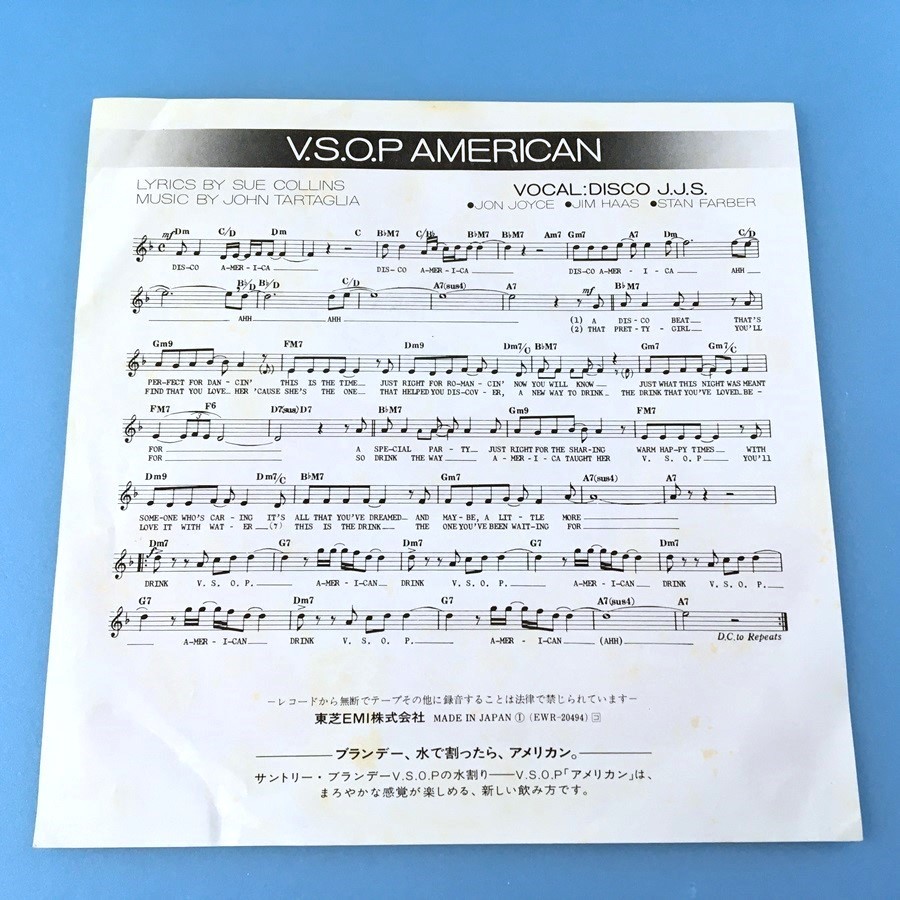 V.S.O.P AMERICAN
LYRICS BY SUE COLLINS
MUSIC BY JOHN TARTAGLIA
VOCAL:DISCO J.J.S.
●JON JOYCE ●JIM HAAS ●STAN FARBER
mf Dm C/D Dm C B♭M7 C/B♭ B♭M7 B♭D7 Am7 Gm7 A7 Dm C/D
DIS-CO A-MER-I-CA DIS-CO A-MER-I-CA DIS-CO A-MER-I-CA AHH
B♭/D B♭/D C/D A7(sus4) A7 mf B♭M7
AHH AHH (1) A DIS-CO BEAT THAT'S
(2) THAT PRET-TY-GIRL YOU'LL
Gm9 FM7 Dm9 Dm7/C B♭M7 Gm7 Gm7/C
PER-FECT FOR DAN-CIN' THIS IS THE TIME JUST RIGHT FOR RO-MAN-CIN' NOW YOU WILL KNOW JUST WHAT THIS NIGHT WAS MEANT
FIND THAT YOU LOVE HER 'CAUSE SHE'S THE ONE THAT HELPED YOU DIS-COV-ER, A NEW WAY TO DRINK THE DRINK THAT YOU'VE LOVED BE-
FM7 F6 D7(sus)D7 B♭M7 Gm9 FM7
FOR A SPE-CIAL PAR-TY JUST RIGHT FOR THE SHAR-ING WARM HAP-PY TIMES WITH
FOR SO DRINK THE WAY A-MER-I-CA TAUGHT HER V. S. O. P. YOU'll
Dm9 Dm7/C B♭M7 Gm7 A7(sus4) A7
SOME-ONE WHO'S CAR-ING IT'S ALL THAT YOU'VE DREAMED AND MAY-BE, A LIT-TLE MORE
LOVE IT WITH WAT-ER (7) THIS IS THE DRINK THE ONE YOU'VE BEEN WAIT-ING FOR
f Dm7 G7 Dm7 G7 Dm7
DRINK V. S. O. P. A-MER-I-CAN DRINK V. S. O. P. A-MER-I-CAN DRINK V. S. O. P.
G7 Dm7 G7 A7(sus4) A7
A-MER-I-CAN DRINK V. S. O. P. A-MER-I-CAN (AHH) D.C. to Repeats
−レコードから無断でテープその他に録音することは法律で禁じられています−
東芝EMI株式会社 MADE IN JAPAN Ⓘ (EWR-20494) コ
ブランデー、水で割ったら、アメリカン。
サントリー・ブランデーV.S.O.Pの水割り——V.S.O.P「アメリカン」は、
まろやかな感覚が楽しめる、新しい飲み方です。